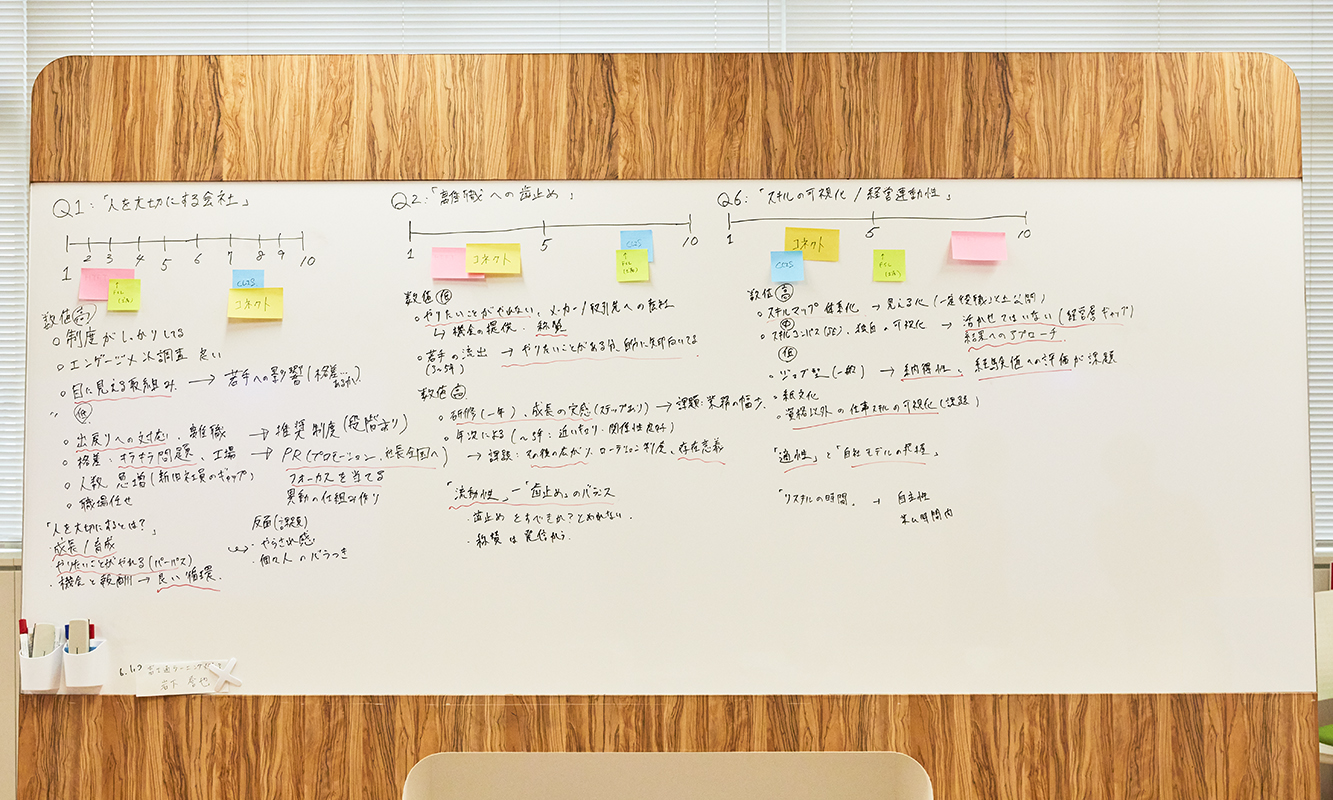 Q1:「人を大切にする会社」
1 2 3 4 5 6 7 8 9 10
CCDS
コネクト
数値 高
○制度がしっかりしてる
○エンゲージメント調査 良い
○目に見える取組み → 若手への影響(格差…
〃 低
○出戻りへの対応、離職 → 推奨制度(段階あり)
○格差・キラキラ問題、工場 → PR(プロモーション、社長全国へ)
フォーカスを当てる
異動の仕組み作り
○人数 急増(新旧社員のギャップ)
○職場任せ
「人を大切にするとは?」
成長/育成
やりたいことがやれる(パーパス)
・機会と報酬 → 良い循環
反面(誤解)
・やらされ感
・個々人のバラつき
Q2:「離職への歯止め」
1 5 10
コネクト
CCDS
数値 低
○やりたいことがやれない、メーカー/取引先への転社
↳ 機会の提供・称賛
○若手の流出 → やりたいことがある分、自分に矢印向いてる
(3~5年)
数値 高
○研修(一年)、成長の実感(ステップあり) → 課題:業務の幅
○年次による(~5年:近い切り・関係性良好)
→ 課題:その後の広がり、ローテーション制度、存在意義
「流動性」-「歯止め」のバランス
・歯止めをすべきか?とめれない
・称賛は発信
Q6:「スキルの可視化/経営連動性」
1 5 10
コネクト
CCDS
数値 高
○スキルマップ 体系化 → 見える化
中
○スキルコンパス 独自・可視化 → 活かせてはいない(経営層ギャップ)
結果へのアプローチ
低
○ジョブ型(一般) → 納得性、経験値への評価が課題
・紙文化
○資格以外の仕事スキルの可視化(課題)
「適性」と「自社モデルの把握」
「リスキルの時間」 → 自主性
時間内